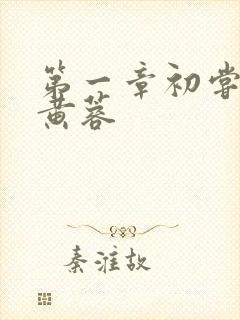 第一章初尝
黄蓉
秦淮故